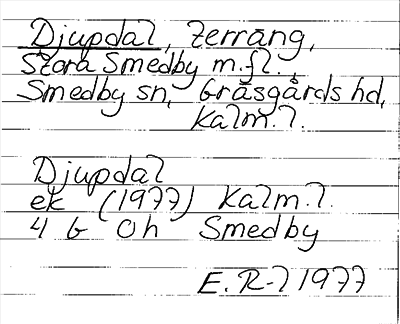 Djupdal, terräng,
Stora Smedby m.fl.
Smedby sn, Gräsgårds hd,
Kalm.l.
Djupdal
ek (1977) Kalm.l.
4 G 0h Smedby
E.R-l 1977